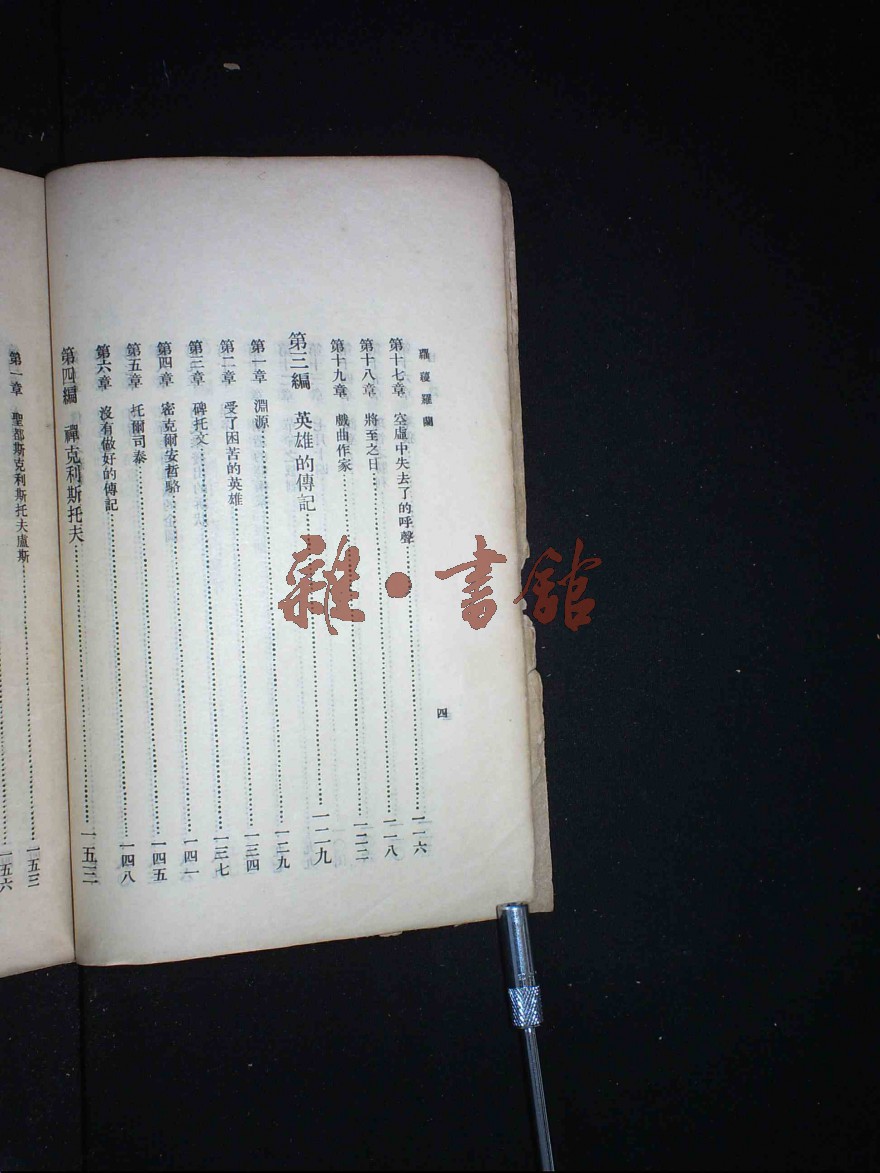 羅稷羅蘭
四
第十七章 空虛中失去了的呼聲……一一六
第十八章 將至之日……一一八
第十九章 戲曲作家……一二二
第三編 英雄的傳記……一二九
第一章 淵源……一二九
第二章 受了困苦的英雄……一三四
第三章 碑托文……一三七
第四章 密克爾安哲駱……一四一
第五章 托爾司泰……一四五
第六章 沒有做好的傳記……一四八
第四編 禪克利斯托夫……一五三
第一章 聖都斯克利斯托夫盧斯……一五三
一五六
雜·書館